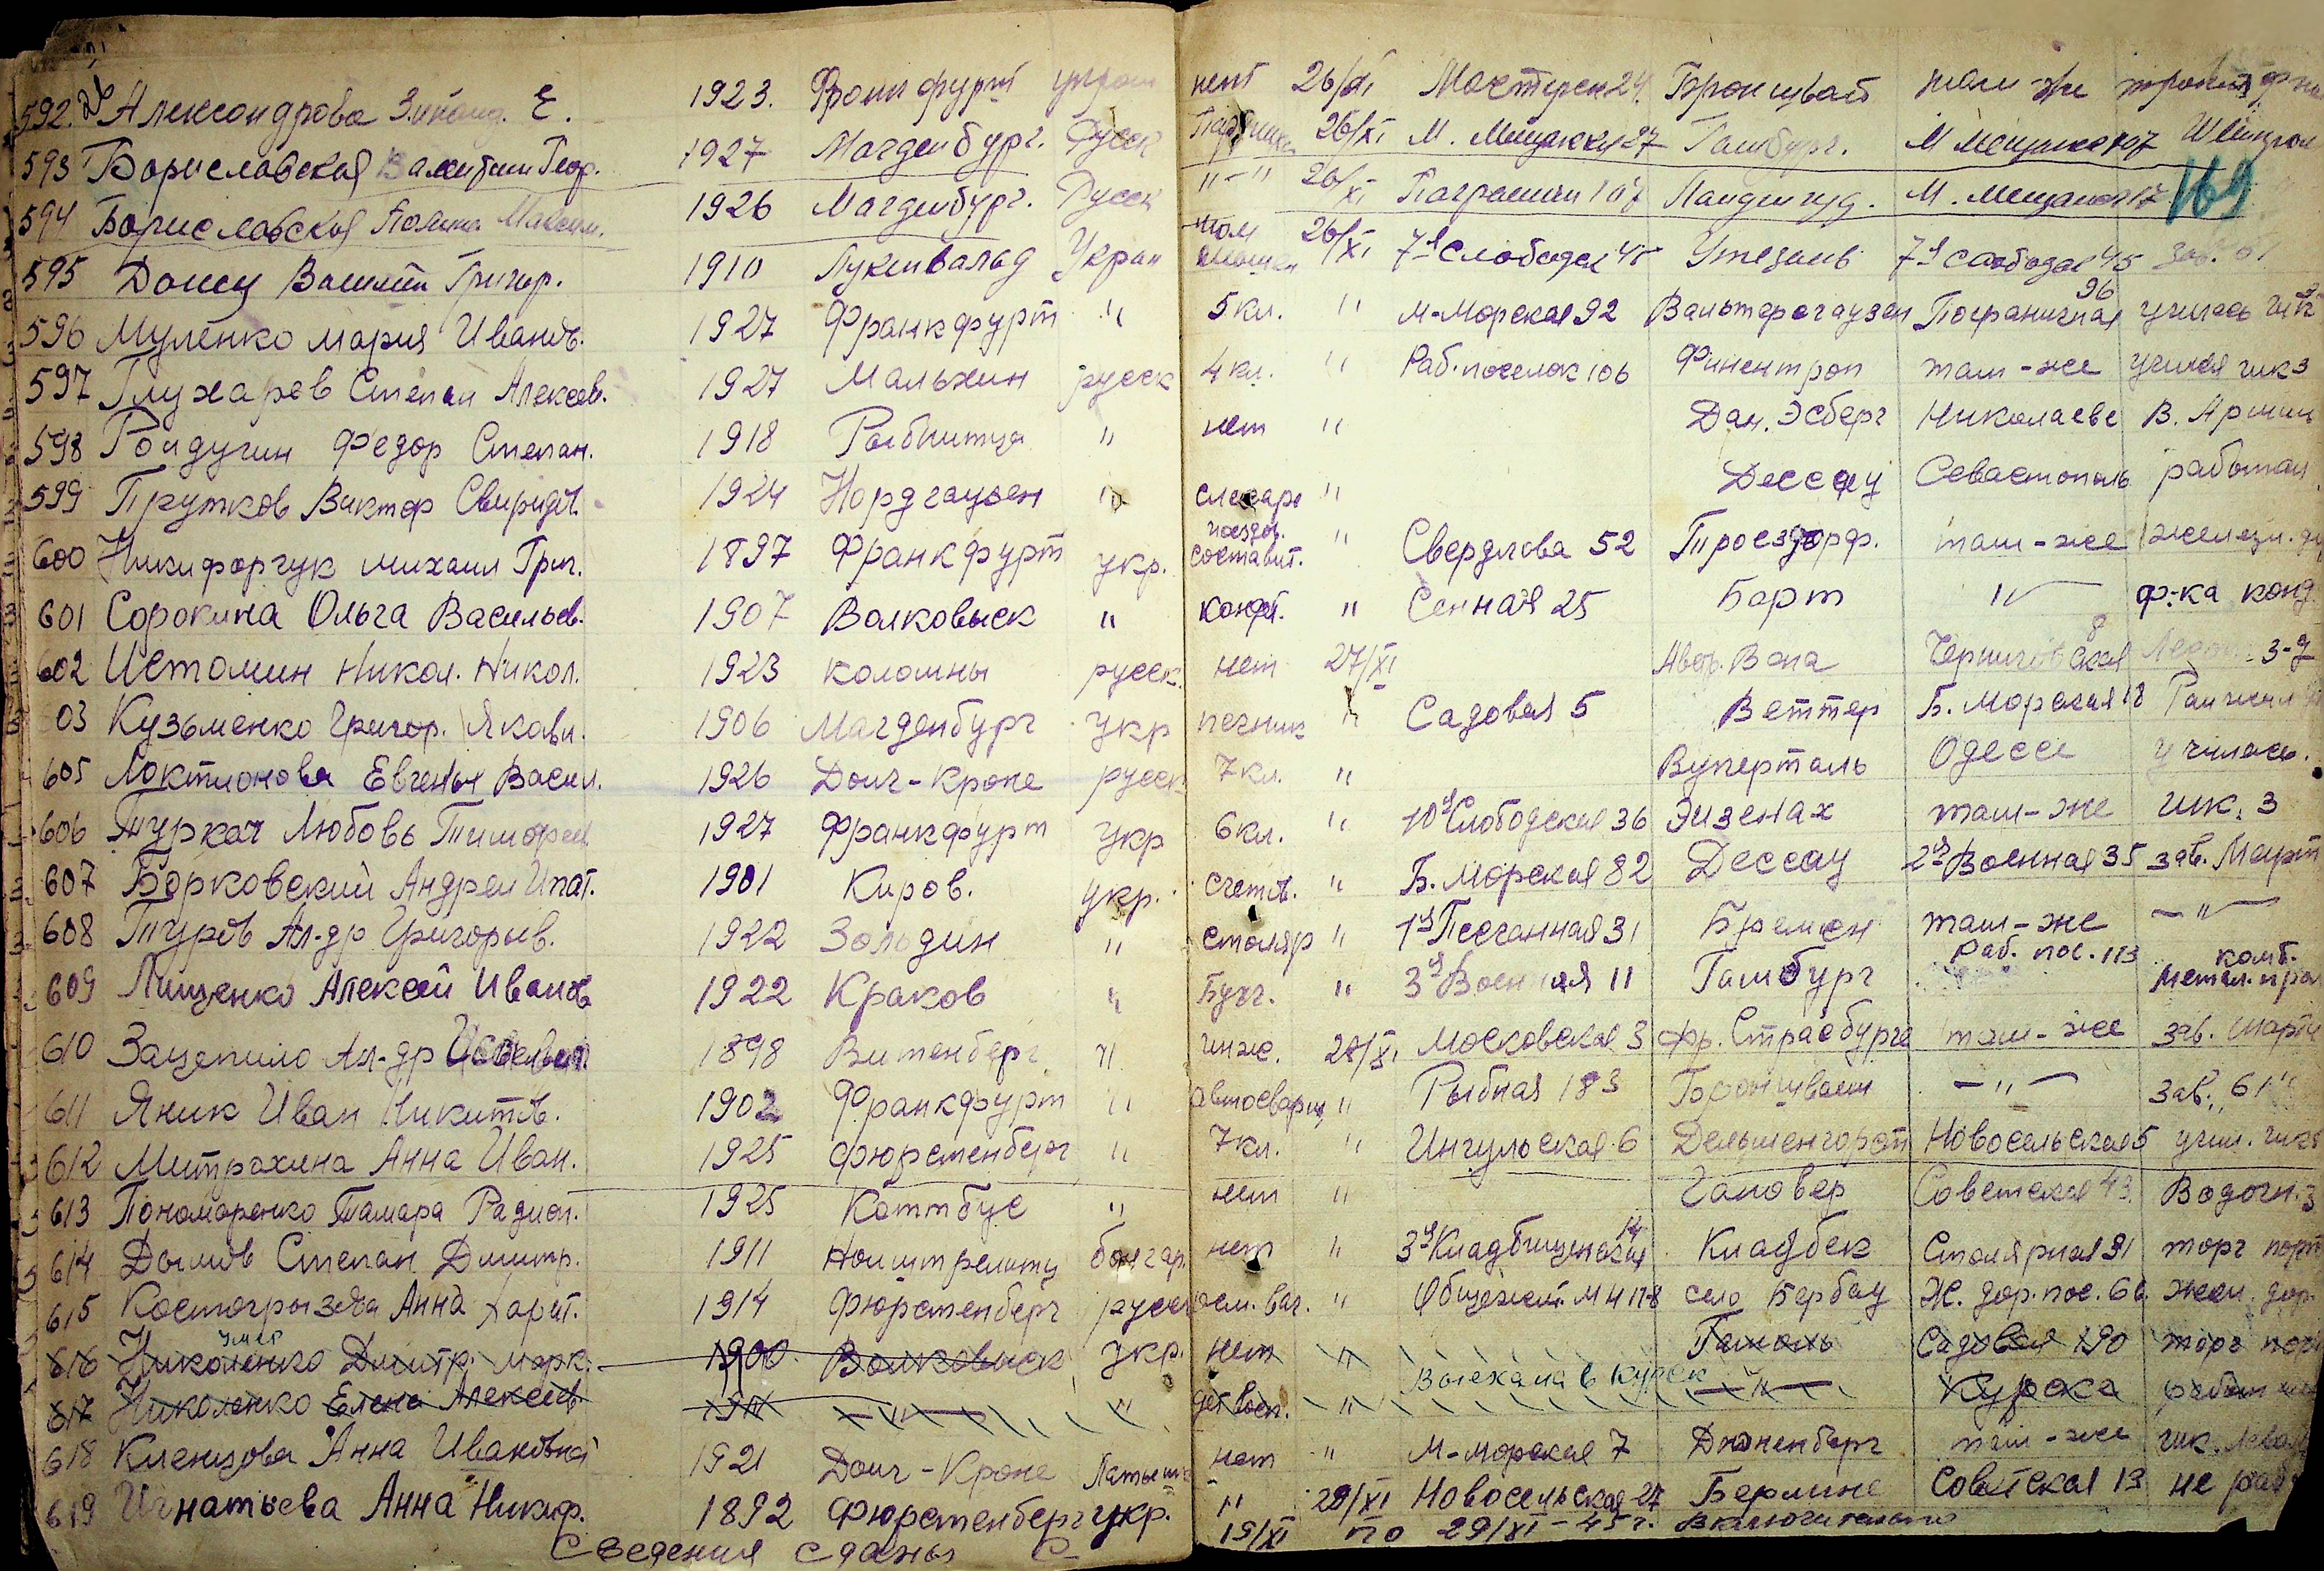 592. Александрова Зинаид. Е. 1923. Франкфурт украи нет 26/XI Мастерск 24. Брауншвай там-же
593 Бориславская Валентин Геор. 1927 Магденбург. Русск 26/XI М. Мещанская 27 Гамбург. М Мещанск 107
594 Бориславская Полина Максим. 1926 Магденбург. Русск "-" 26/XI Погранич 107 М. Мещанск 17 169
595 Василий Григор. 1910 Лукенвальд Украи 26/XI 7я Слободск 45 7я слободск 45 зав. 61
596 Муленко Мария Ивановн. 1927 Франкфурт " 5 кл. " М-Морская 92 Вальтерсгаузен Пограничная 96 училась шк
597 Глухарев Степан Алексеев. 1927 Мальхин русск 4 кл. " Раб. поселок 106 Финентроп там-же учился шк 3
598 Рондугин Федор Степан. 1918 Рыбница " нет " Дан. Эсберг Николаеве В. Армии
599 Прутков Виктор Свиридов. 1924 Нордгаузен " слесарь " Дессау Севастополь работал
600 Никифорчук Михаил Григ. 1897 Франкфурт укр. поездов. составит. " Свердлова 52 Троездорф. там-же железн. д
601 Сорокина Ольга Васильев. 1907 Волковыск " кондт. " Сенная 25 Барт " ф-ка конд.
602 Истомин Никол. Никол. 1923 Коломны русск. нет 27/XI Черниговская 8 з-д
03 Кузьменко Григор. Яковл. 1906 Магденбург укр печник " Садовая 5 Веттер Б. Морская 18
605 Локтионова Евгенья Васил. 1926 Дойч-Кроне русск 7 кл. " Вуперталь Одессе училась.
606 Туркач Любовь Тимофеев 1927 Франкфурт укр 6 кл. " 10я Слободская 36 Эизенах там-же шк. 3
607 Борковский Андрей Ипат. 1901 Киров. укр. счетов. " Б. Морская 82 Дессау 2я Военная 35 зав. Марти
608 Туров Ал-др Григорьев. 1922 Зольдин " столяр " 1я Песчанная 31 Бремен там-же -"-
609 Лищенко Алексей Иванов 1922 Краков " Бухг. " 3я Военная 11 Гамбург Раб. пос. 113 комб. метал. пра
610 Зацепило Ал-др 1898 Витенберг " инж. 28/XI Московская 3 Фр. Страсбурге там-же зав. Марти
611 Яник Иван Никитов. 1902 Франкфурт " автосварщ " Рыбная 183 Брауншвейг -"- зав. 61
612 Митрохина Анна Иван. 1925 Фюрстенберг " 7 кл. " Ингульская 6 Дельменгорст Новосельская 5 учил. шк
613 Пономаренко Тамара Радион. 1925 Коттбус " нет " Гановер Советская 43. Водочн. з
614 Дымов Степан Дмитр. 1911 Ноиштрелитц болгар. нет " 3я Кладбищенская 14 Кладбек Столярная 31 торг порт
615 Костогрызова Анна Харит. 1914 Фюрстенберг русск " Общежит. М 4178 село Бербау Ж. дор. пос. 66 жел. дор.
616 Николенко Дмитр. Марк. умер 1900. Волковыск укр. нет " Садовая 190 торг порт
617 Николенко Елена Алексеев. -"- " дет восп. " Выехала в Курск -"- Курска
618 Кленцова Анна Ивановна 1921 Дойч-Кроне Латышк нет " М-Морская 7 там-же шк.
619 Игнатьева Анна Никиф. 1892 Фюрстенберг укр. " 29/XI Новосельская 27 Берлине Советская 13 не раб
Сведения сданы с 19/XI по 29/XI-45 г. включительно